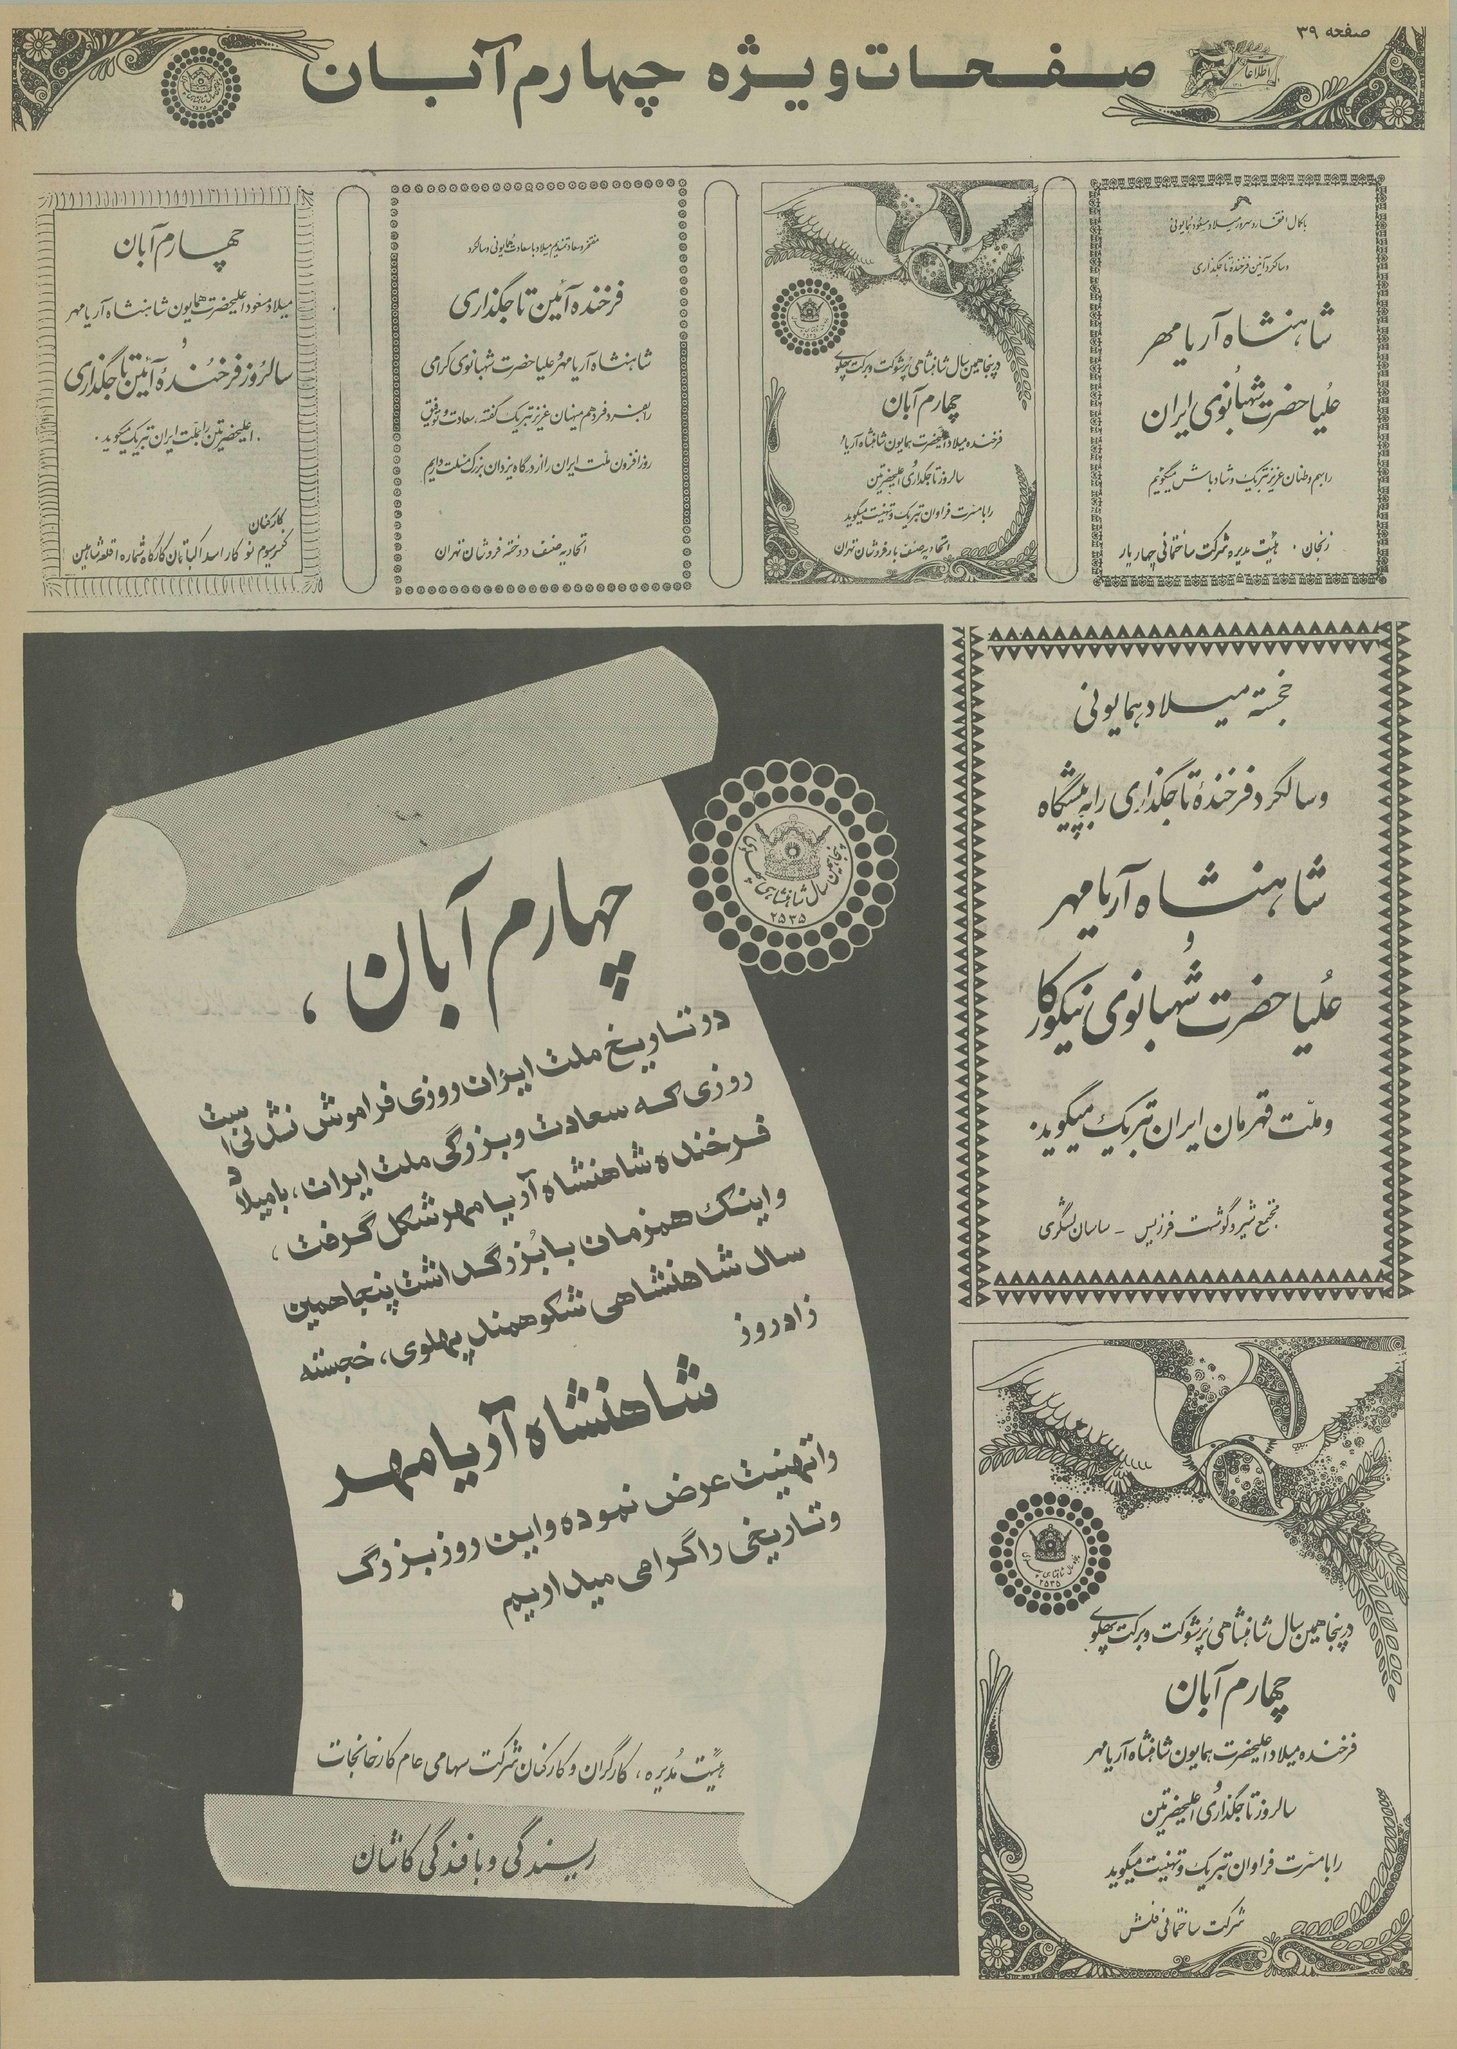 صفحه ۳۹
اطلاعات
صفحات ویژه چهارم آبان
با کمال افتخار و سرور میلاد مسعود همایونی
و سالگرد آئین فرخندهٔ تاجگذاری
شاهنشاه آریامهر
و
علیاحضرت شهبانوی ایران
را بهم وطنان عزیز تبریک و شادباش میگوئیم
زنجان . هیئت مدیره شرکت ساختمانی چهاریار
در پنجاهمین سال شاهنشاهی پرشوکت و برکت پهلوی
چهارم آبان
فرخنده میلاد اعلیحضرت همایون شاهنشاه آریامهر
و
سالروز تاجگذاری اعلیحضرتین
را با مسرت فراوان تبریک و تهنیت میگوید
اتحادیه صنف بارفروشان تهران
مفتخر و سعادتمندیم میلاد با سعادت همایونی و سالگرد
فرخنده آئین تاجگذاری
شاهنشاه آریامهر و علیاحضرت شهبانوی گرامی
را بفرد فرد هم میهنان عزیز تبریک گفته ، سعادت و توفیق
روزافزون ملت ایران را از درگاه یزدان بزرگ مسئلت داریم
اتحادیه صنف دوخته فروشان تهران
چهارم آبان
میلاد مسعود اعلیحضرت همایون شاهنشاه آریامهر
و
سالروز فرخندهٔ آئین تاجگذاری
اعلیحضرتین را بملت ایران تبریک میگوید .
کارکنان
کنسرسیوم نوکار اسد اکباتان کارگاه شماره ۱ قلعه شاهین
خجسته میلاد همایونی
و سالگرد فرخندهٔ تاجگذاری را به پیشگاه
شاهنشاه آریامهر
و
علیاحضرت شهبانوی نیکوکار
و ملّت قهرمان ایران تبریک میگوید.
مجتمع شیر و گوشت فرزیس - ساسان لشگری
پنجاهمین سال شاهنشاهی پهلوی
۲۵۳۵
چهارم آبان ،
در تاریخ ملت ایران روزی فراموش نشدنی است
روزی که سعادت و بزرگی ملت ایران، با میلاد
فرخنده شاهنشاه آریامهر شکل گرفت ،
و اینک همزمان با بزرگداشت پنجاهمین
سال شاهنشاهی شکوهمند پهلوی، خجسته
زادروز
شاهنشاه آریامهر
را تهنیت عرض نموده و این روز بزرگ
و تاریخی را گرامی میداریم
هیئت مدیره ، کارگران و کارکنان شرکت سهامی عام کارخانجات
ریسندگی و بافندگی کاشان
پنجاهمین سال شاهنشاهی پهلوی
۲۵۳۵
در پنجاهمین سال شاهنشاهی پرشوکت و برکت پهلوی
چهارم آبان
فرخنده میلاد اعلیحضرت همایون شاهنشاه آریامهر
و
سالروز تاجگذاری اعلیحضرتین
را با مسرت فراوان تبریک و تهنیت میگوید
شرکت ساختمانی فلش